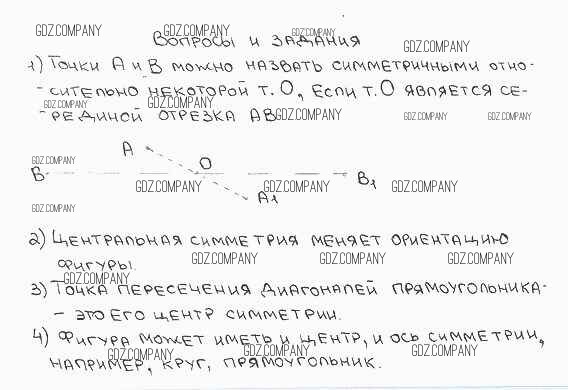 GDZ.COMPANY GDZ.COMPANY GDZ.COMPANY
Вопросы и задания GDZ.COMPANY
1) Точки А и В можно назвать симметричными отно-
- сительно некоторой т. О, если т. О является се-
GDZ.COMPANY GDZ.COMPANY
- рединой отрезка АВ GDZ.COMPANY GDZ.COMPANY GDZ.COMPANY
А
GDZ.COMPANY О
В В1
GDZ.COMPANY GDZ.COMPANY GDZ.COMPANY
А1
GDZ.COMPANY
2) Центральная симметрия меняет ориентацию
фигуры. GDZ.COMPANY GDZ.COMPANY GDZ.COMPANY
GDZ.COMPANY
3) Точка пересечения диагоналей прямоугольника-
- это его центр симметрии.
4) Фигура может иметь и центр, и ось симметрии,
GDZ.COMPANY GDZ.COMPANY GDZ.COMPANY
например, круг, прямоугольник.